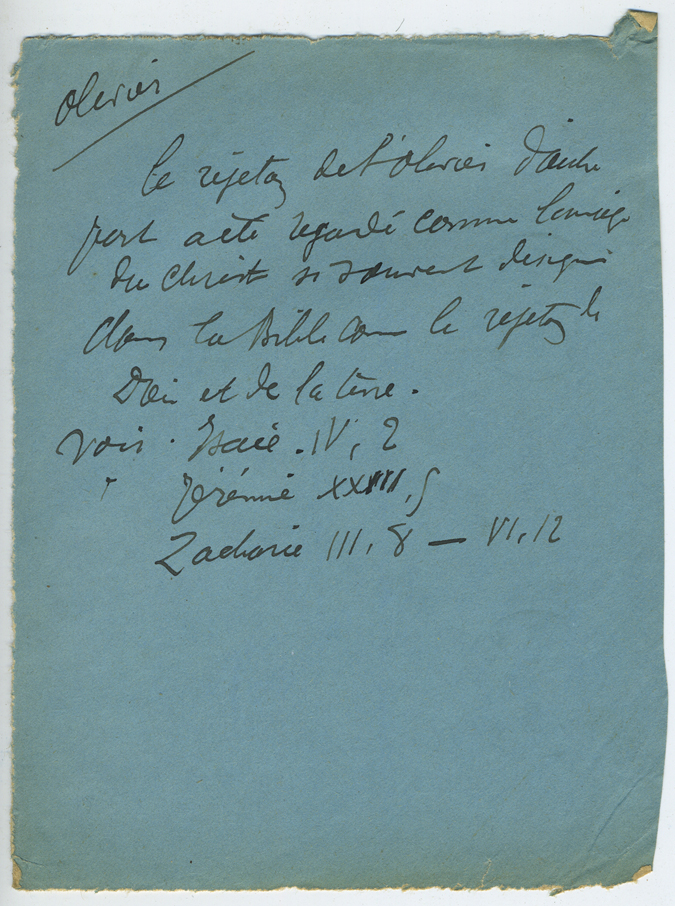 olivier
Le rejeton de l'olivier d'autre
part a été regardé comme l'image
du Christ si souvent désigné
dans la Bible comme le rejeton de
et de la terre.
Voir . Isaïe . IV, 2
" Jérémie XXIII, 5
Zacharie III, 8 — VI, 12